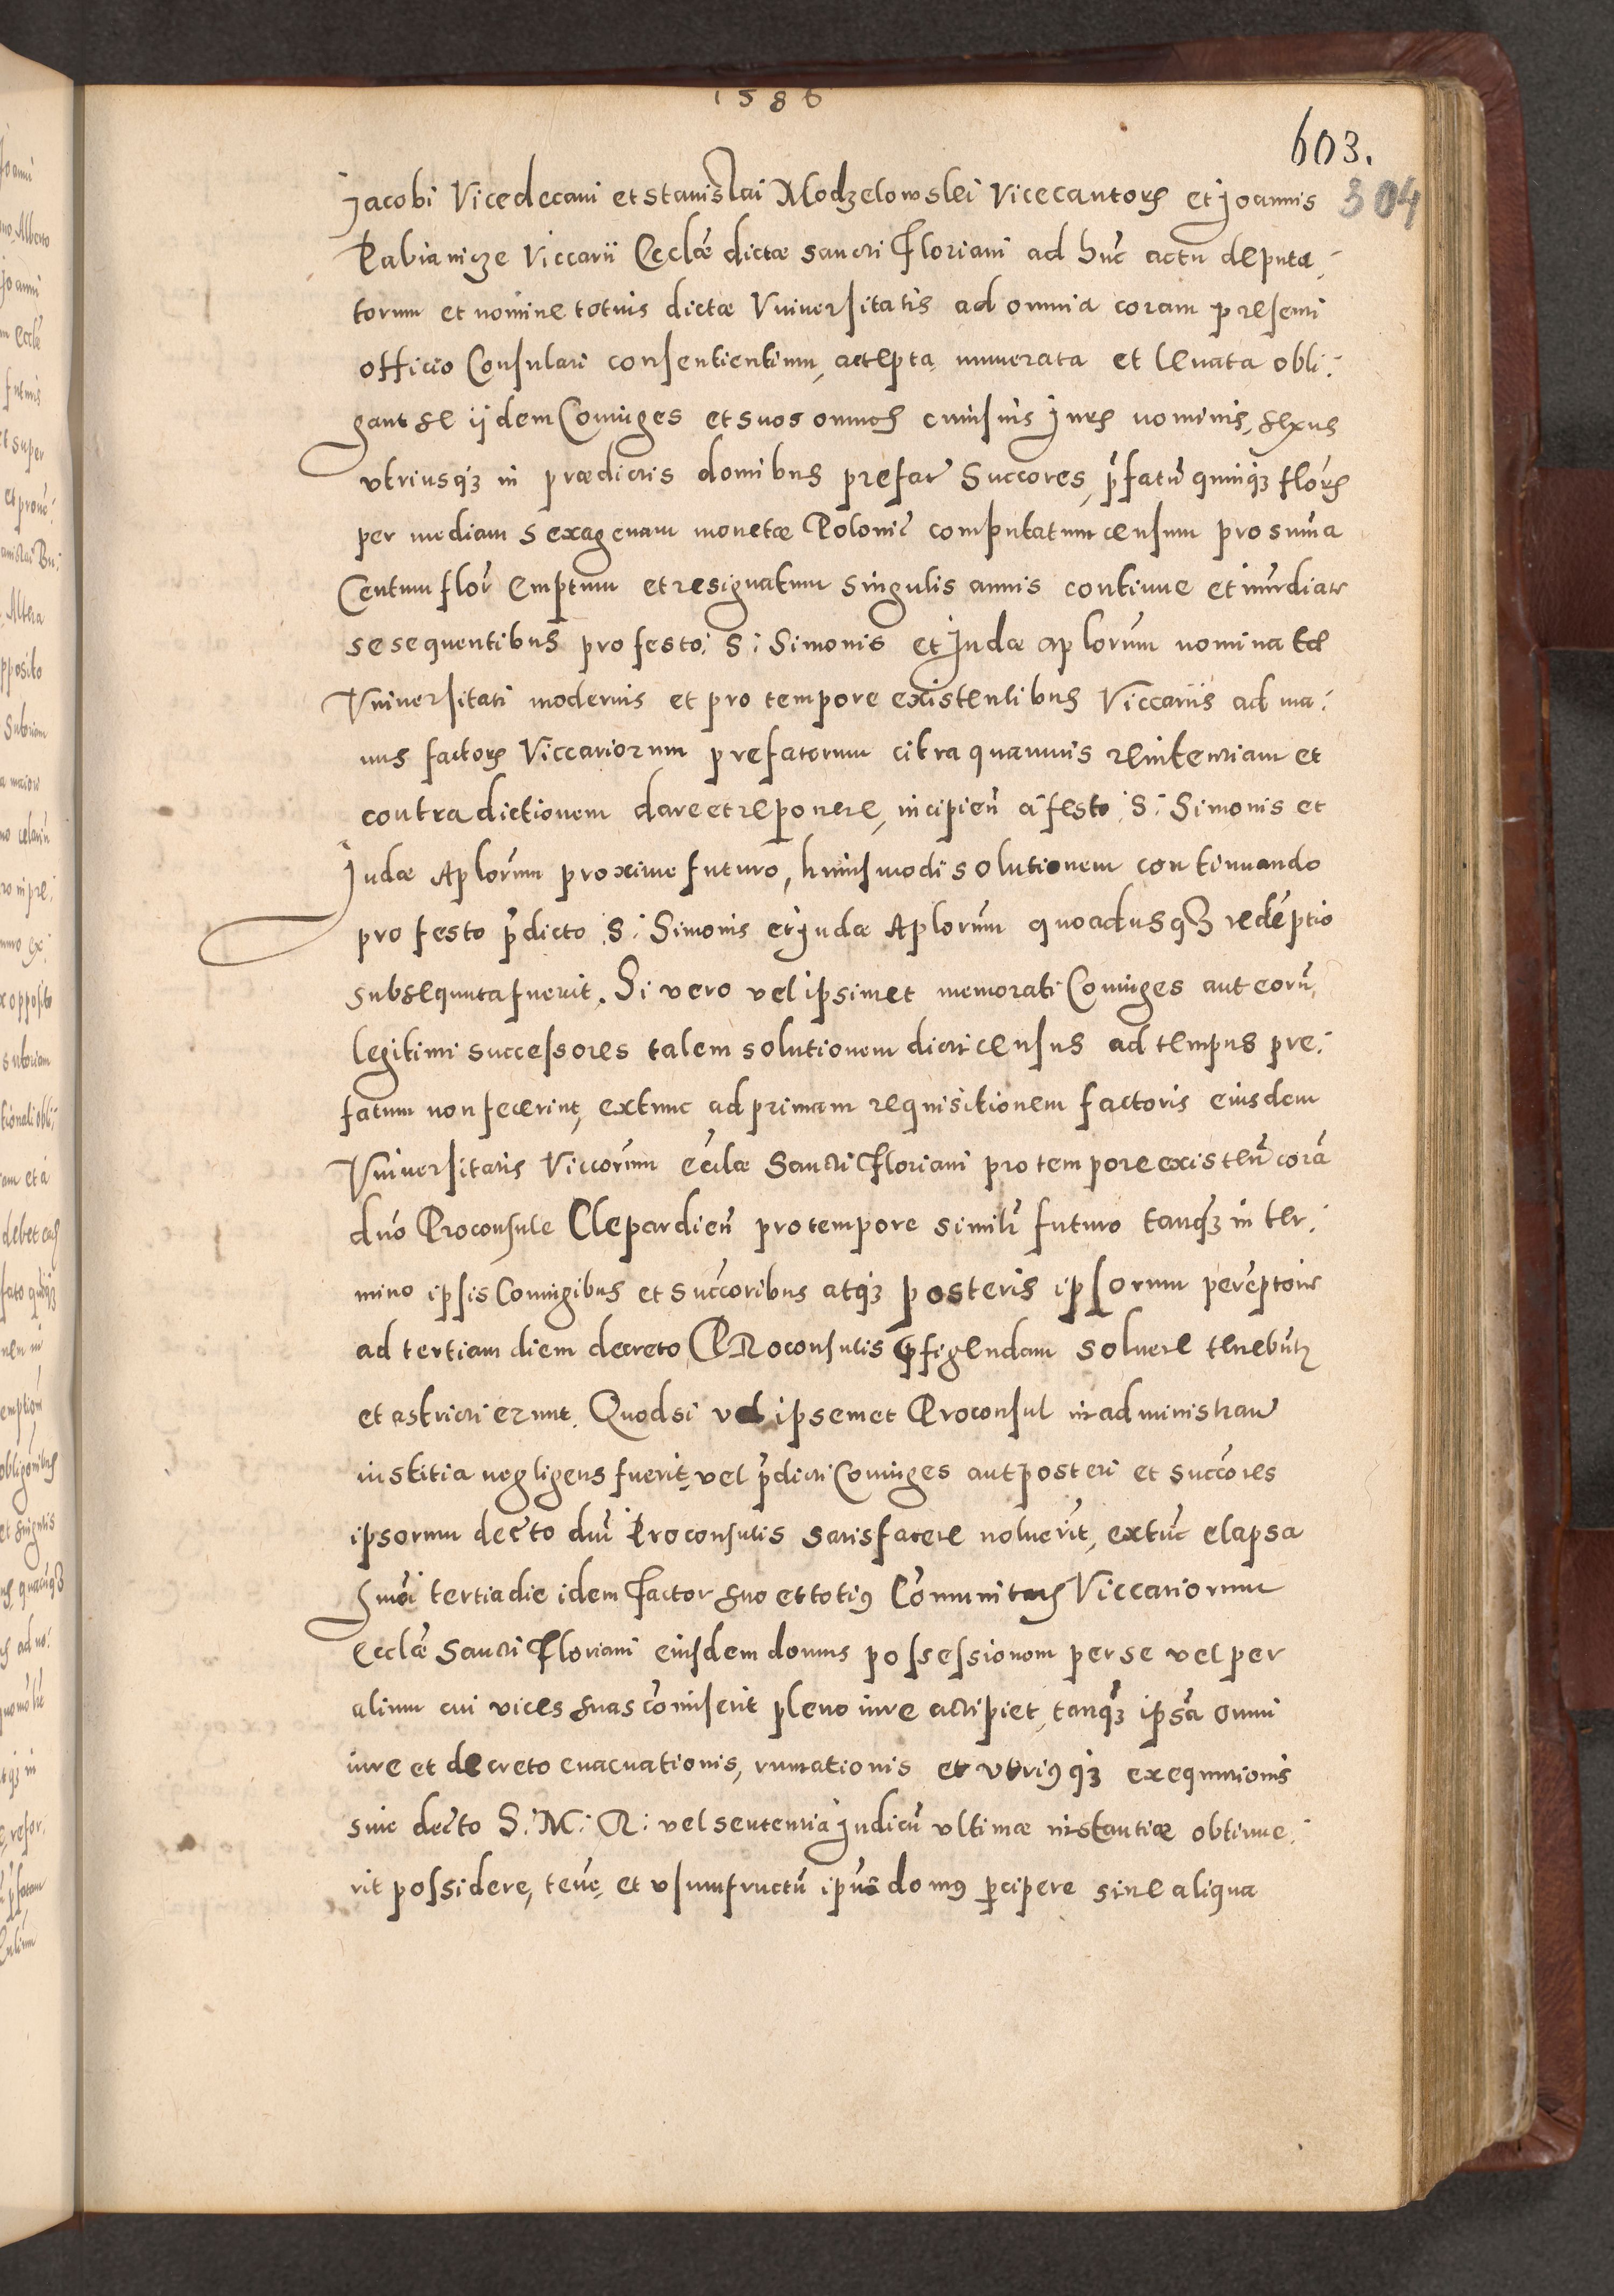 1586
603.
304
Jacobi Vicedecani et Stanislai Modzelowskj Vicecantoris et Joannis
Pabianicze Viccarii Ecclæ dictæ Sancti Floriani ad hūc actu deputa:
torum et nomine totius dictæ Vniuersitatis ad omnia coram presenti
officio Consulari consentientium, accepta numerata et leuata obli:
gant se ijdem Coniuges et suos omnes cuiusuis Juris nominis, sexus
vtriusq3 in prædictis domibus prefat Succores, p̄fatū quinq3 floris
per mediam sexagenam monetæ Polonic computatum censum pro sum̄a
Centum flor emptum et resignatum singulis annis continue et im̄ediate
sesequentibus pro festo: S: Simonis et Judæ aplorum nominatæ
Vniuersitati modernis et pro tempore existentibus Viccariis ad ma:
nus factoris Viccariorum prefatorum citra quamuis renitentiam et
contradictionem dare et reponere, incipien̄ a festo: S: Simonis et
Judæ Aplorum proxime futuro, huiusmodi solutionem continuando
pro festo p̄dicto S: Simonis et Judæ Aplorum quoadusq3 redēptio
subsequuta fuerit. Si vero vel ipsimet memorati Coniuges aut eorū
legitimi successores talem solutionem dicti census ad tempus pre:
fatum non fecerint, extunc ad primam requisitionem factoris eiusdem
Vniuersitatis Viccorum ecclæ Sancti Floriani pro tempore existen̄ corā
dn̄o Proconsule Clepardien̄ pro tempore simili futuro tanq3 in ter:
mino ipsis Coniugibus et succoribus atq3 posteris ipsorum perēptorie
ad tertiam diem decreto PRoconsulis p̄figendam soluere tenebūtur
et astricti erunt. Quodsi vel ipsemet Proconsul in administran̄
iustitia negligens fuerit, vel p̄dicti Coniuges aut posteri et succores
ipsorum decto dn̄i Proconsulis satisfacere noluerīt, extūc elapsa
hmōi tertia die idem Factor suo et totiꝰ Cōmunitatis Viccariorum
Ecclæ Sancti Floriani eiusdem domus possessionem per se vel per
alium cui vices suas cōmiserit pleno iure accipiet, tanq3 ipsā omni
iure et decreto euacuationis, rumationis et vtriꝰq3 exequutionis
siue decto S: M: R: vel sententia Judicū vltimæ instantiæ obtinue:
rit possidere, tene, et vsumfructū ipiꝰ domꝰ pcipere sine aliqua